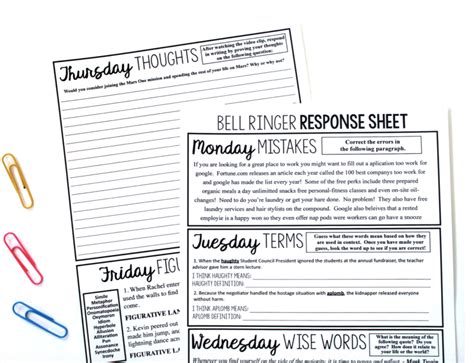 Thursday THOUGHTS
After watching the video clip, respond
in writing by proving your thoughts
on the following question.
Would you consider joining the Mars One mission and spending the rest of your life on Mars? Why or why not?
Friday FIG
Simile
Metaphor
Personification
Onomatopoeia
Oxymoron
Idiom
Hyperbole
Allusion
Alliteration
Assonance
Pun
1. When Rachel enter
used the walls to find
come.
FIGURATIVE LANG
2. Kevin peered out
made him jump, and
lightning continued
BELL RINGER RESPONSE SHEET
Monday MISTAKES
Correct the errors in
the following paragraph.
If you are looking for a great place to work you might want to fill out a aplication too work for
google. Fortune.com releases an article each year called the 100 best companys too work for
and google has made the list every year! Some of the free perks include prepared
organic meals a day unlimited snacks free personal-fitness classes and even on-site oil-
changes! Need to do you're laundry or get your hair done. No problem! They also have free
laundry services and hair stylists on the compound. Google also beleives that a rested
employe is a happy won so they even offer nap pods were workers can go have a snooze
Tuesday TERMS
Guess what these words mean based on how they
are used in context. Once you have made your
guess, look the word up to see if you are correct!
1. When the haughty Student Council President ignored the students at the annual fundraiser, the teacher
advisor gave him a stern lecture.
I THINK HAUGHTY MEANS:
HAUGHTY DEFINITION:
2. Because the negotiator handled the hostage situation with aplomb, the kidnapper released everyone
without harm.
I THINK APLOMB MEANS:
APLOMB DEFINITION:
Wednesday WISE WORDS
What is the meaning of
the following quote? Do you
agree? How does it relate to
your life or the world?
Whenever you find yourself on the side of the majority, it is time to pause and reflect - Mark Twain